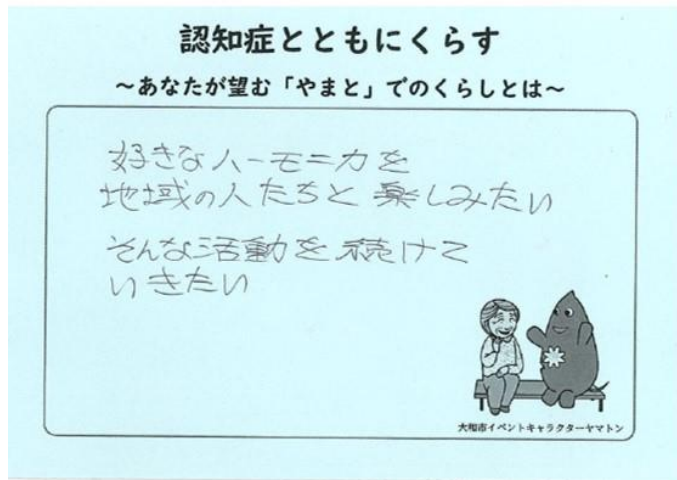 認知症とともにくらす
～あなたが望む「やまと」でのくらしとは～
好きなハーモニカを
地域の人たちと楽しみたい
そんな活動を続けて
いきたい
大和市イベントキャラクターヤマトン